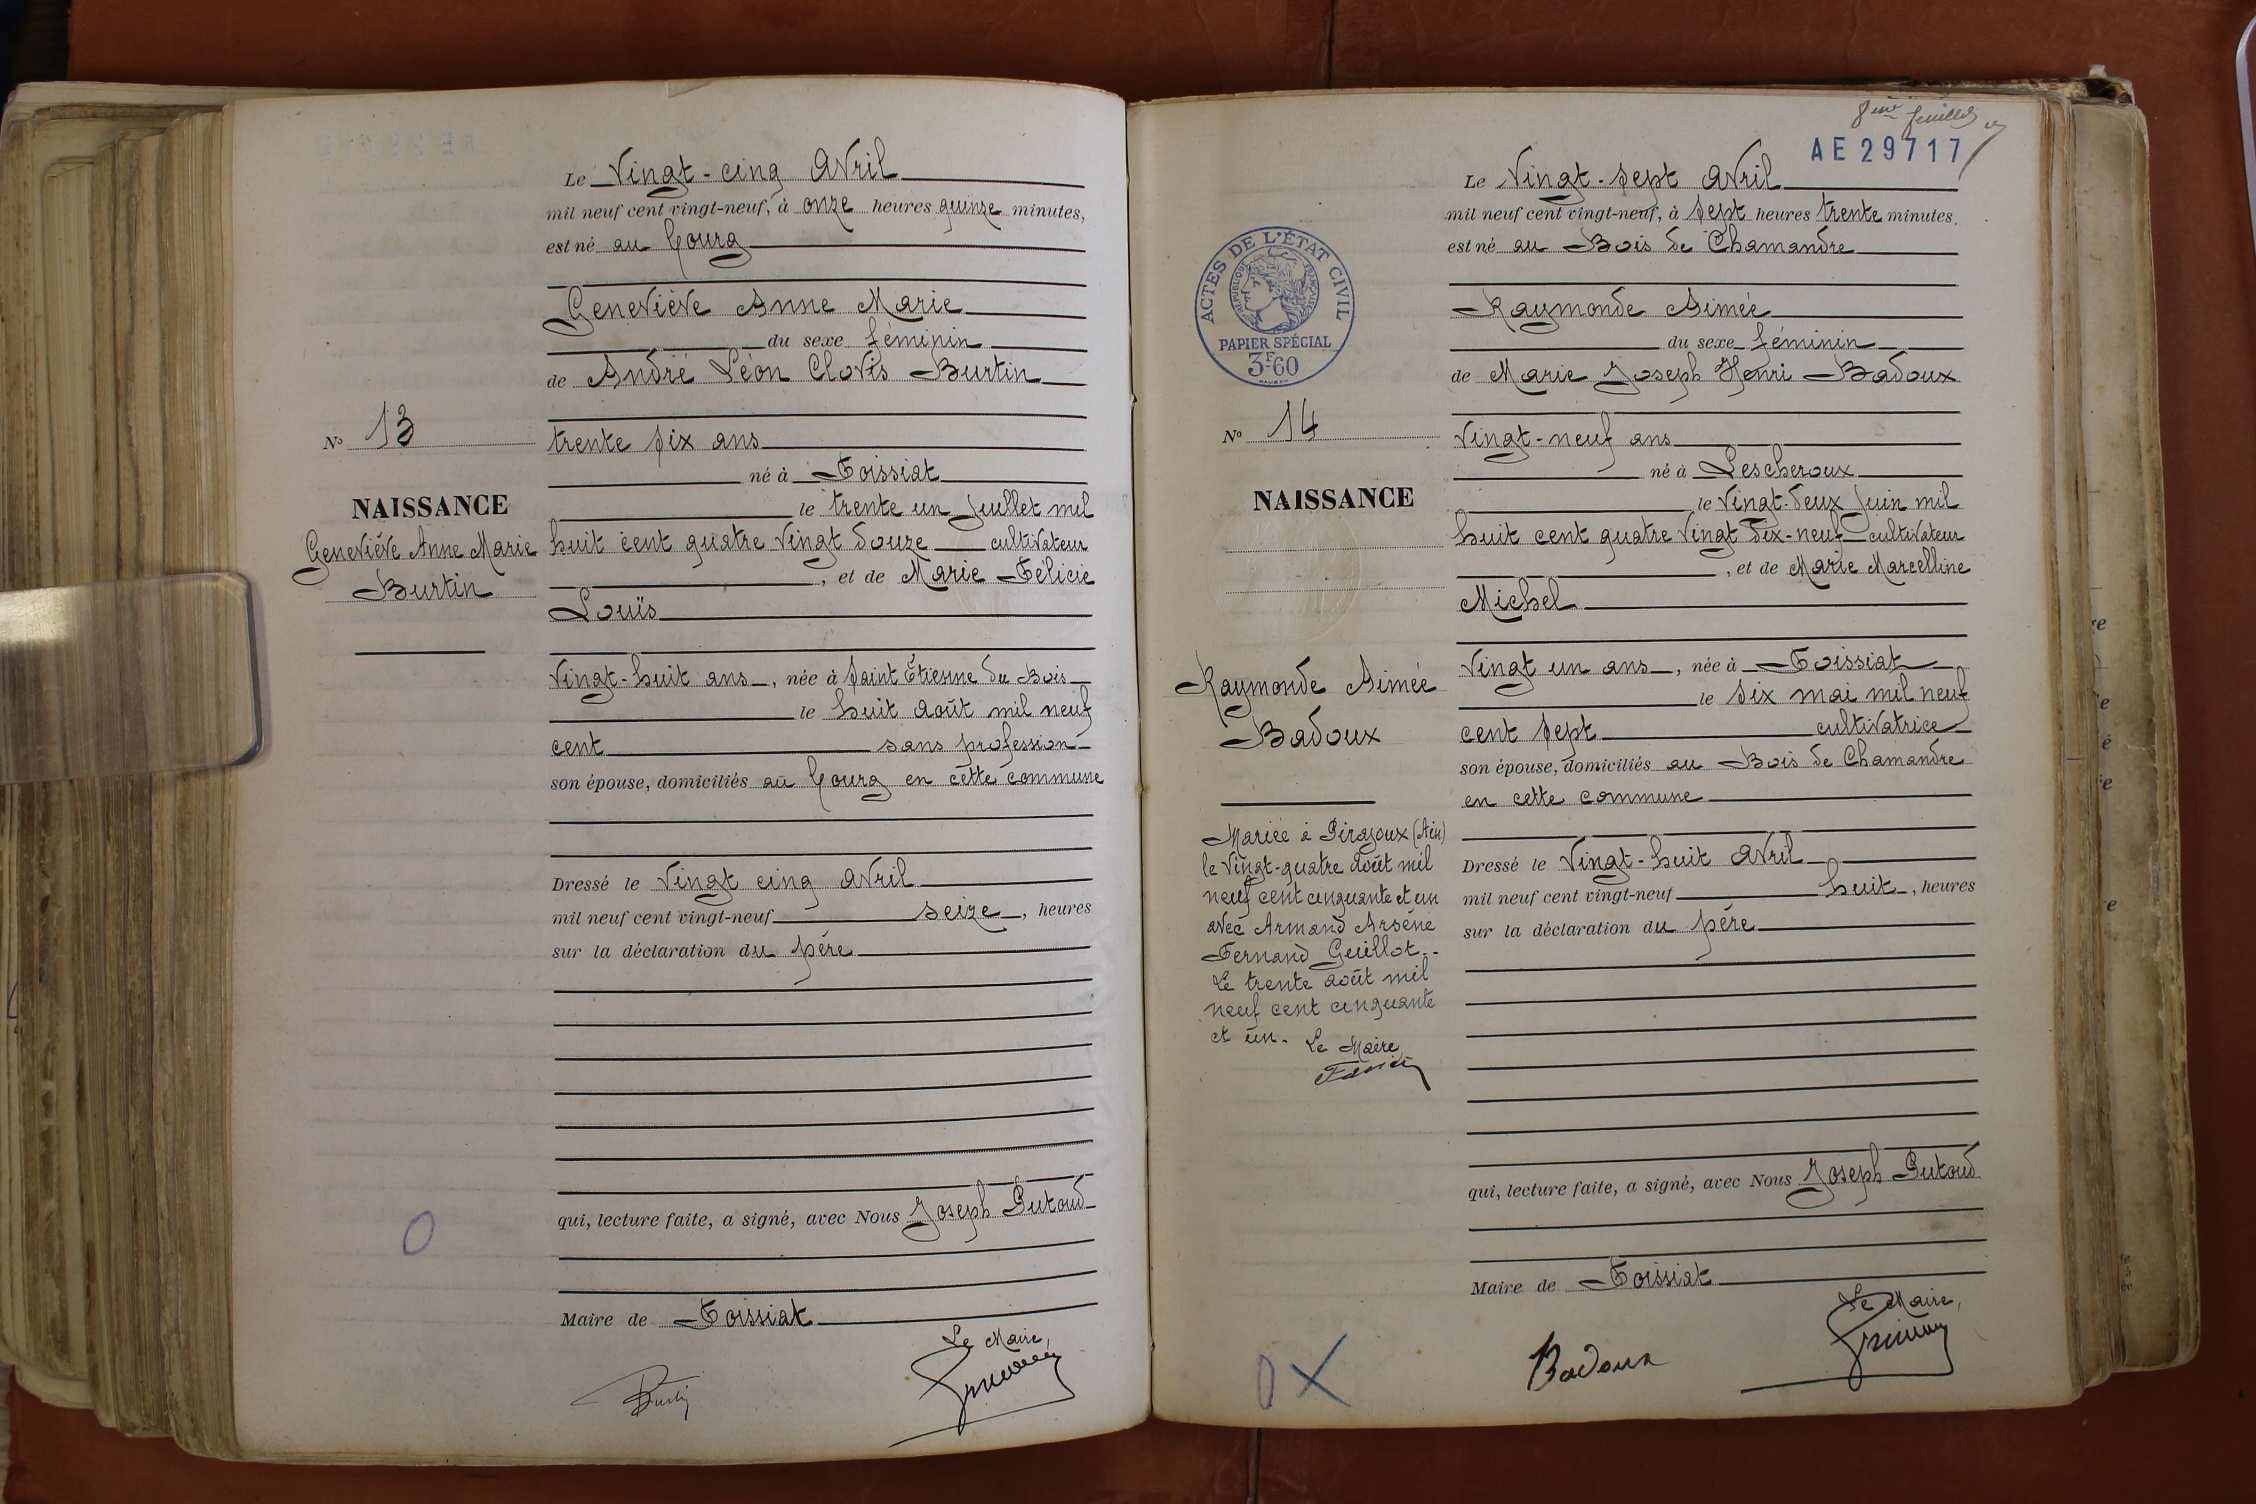 Le Vingt-cinq Avril
mil neuf cent vingt-neuf, à onze heures quinze minutes,
est né au Courg
Geneviève Anne Marie
du sexe féminin
de André Léon Clovis Burtin
No 13
trente six ans
né à Foissiat
le trente un Juillet mil
NAISSANCE
Geneviève Anne Marie
Burtin
huit cent quatre vingt douze cultivateur
, et de Marie Félicie
Louis
Vingt-huit ans, née à Saint Etienne du Bois
le huit août mil neuf
cent sans profession
son épouse, domiciliés au Courg en cette commune
Dressé le Vingt cinq Avril
mil neuf cent vingt-neuf seize, heures
sur la déclaration du père
qui, lecture faite, a signé, avec Nous Joseph Putoud
Maire de Foissiat
Le Maire,
Burtin
8ème feuillet
AE 29717
Le Vingt-sept Avril
mil neuf cent vingt-neuf, à sept heures trente minutes.
est né au Bois de Chamandre
ACTES DE L'ÉTAT CIVIL
RÉPUBLIQUE FRANÇAISE
PAPIER SPÉCIAL
3F.60
Raymonde Aimée
du sexe féminin
de Marie Joseph Henri Badoux
No 14
Vingt-neuf ans
né à Lescheroux
le Vingt-deux Juin mil
NAISSANCE
huit cent quatre Vingt dix-neuf cultivateur
, et de Marie Marcelline
Michel
Raymonde Aimée
Badoux
Vingt un ans, née à Foissiat
le six mai mil neuf
cent sept cultivatrice
son épouse, domiciliés au Bois de Chamandre
en cette commune
Mariée à Pirajoux (Ain)
le Vingt-quatre août mil
neuf cent cinquante et un
avec Armand Arsène
Fernand Guillot.-
Le trente août mil
neuf cent cinquante
et un. Le Maire
Dressé le Vingt-huit Avril
mil neuf cent vingt-neuf huit, heures
sur la déclaration du père
qui, lecture faite, a signé, avec Nous Joseph Putoud
Maire de Foissiat
Le Maire,
Badoux